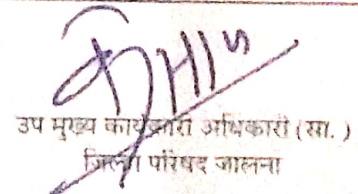 उप मुख्य कार्यकारी अधिकारी (सा.)
जिल्हा परिषद जालना